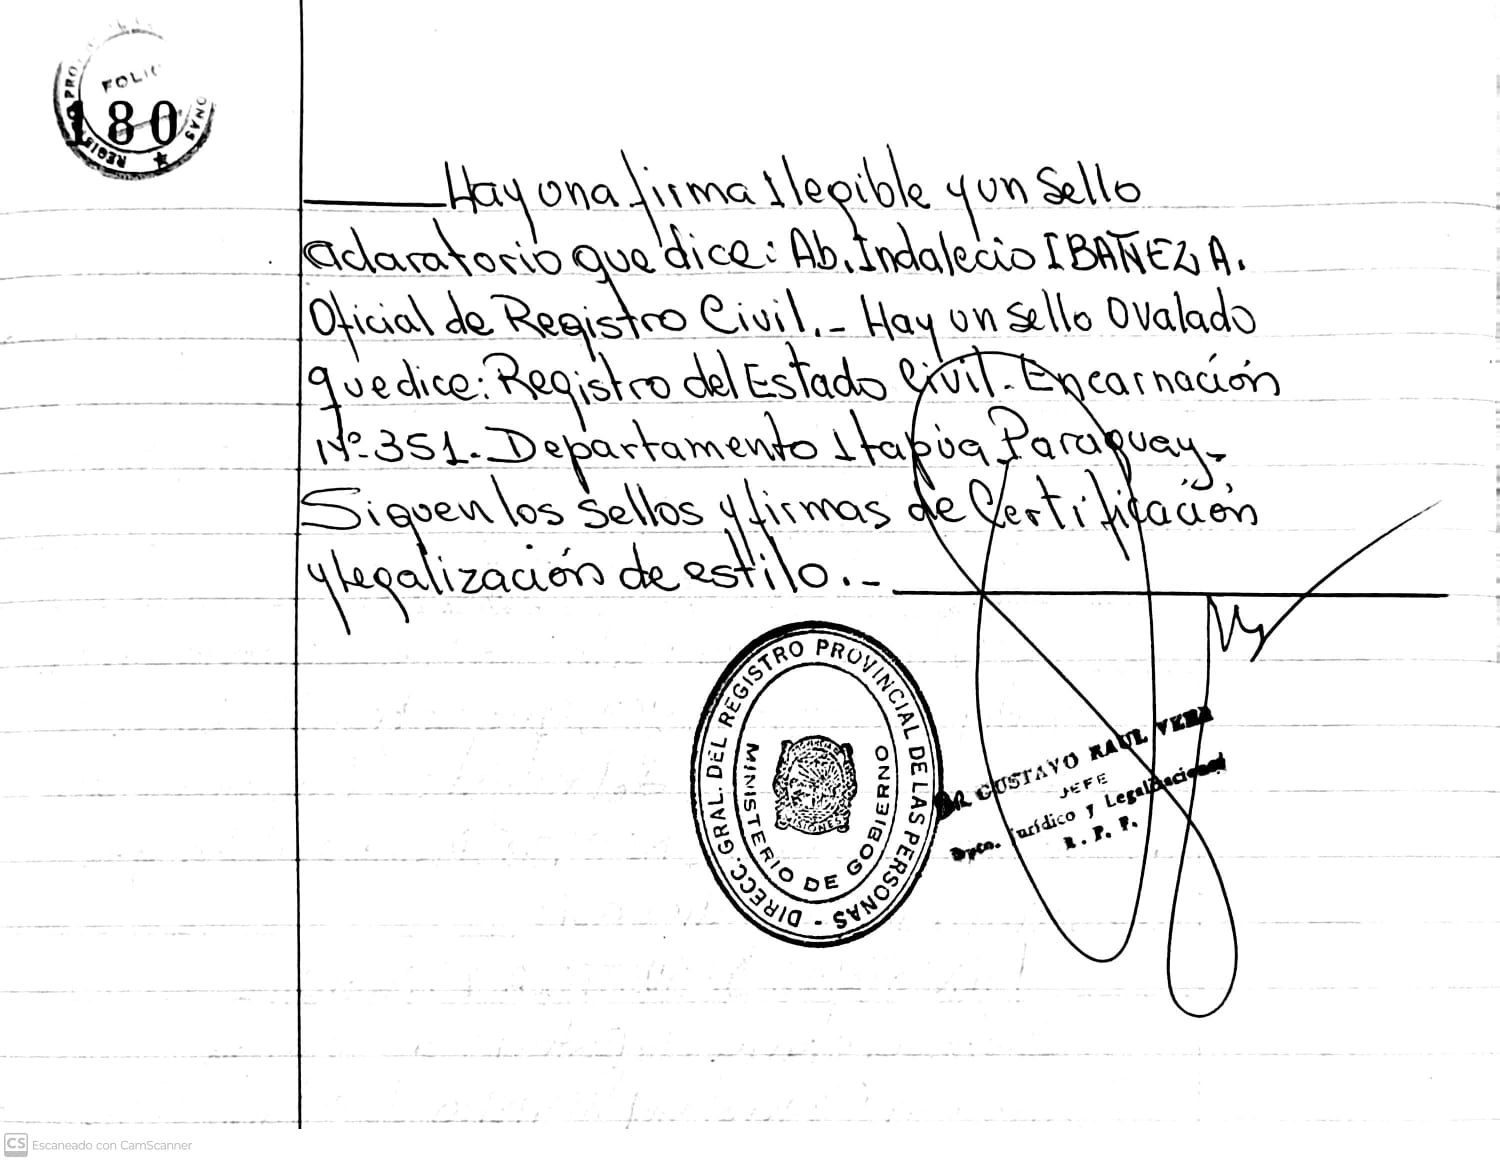 FOLIO
180
Hay una firma Ilegible y un Sello
aclaratorio que dice: Ab. Indalecio IBAÑEZ A.
Oficial de Registro Civil.- Hay un sello Ovalado
que dice: Registro del Estado Civil. Encarnación
Nº 351. Departamento Itapúa Paraguay.-
Siguen los sellos y firmas de Certificación
y Legalización de estilo.-
DIRECC. GRAL. DEL REGISTRO PROVINCIAL DE LAS PERSONAS -
MINISTERIO DE GOBIERNO
MISIONES
DR. GUSTAVO RAUL VERA
JEFE
Dpto. Jurídico y Legalizaciones
R. P. P.
CS Escaneado con CamScanner